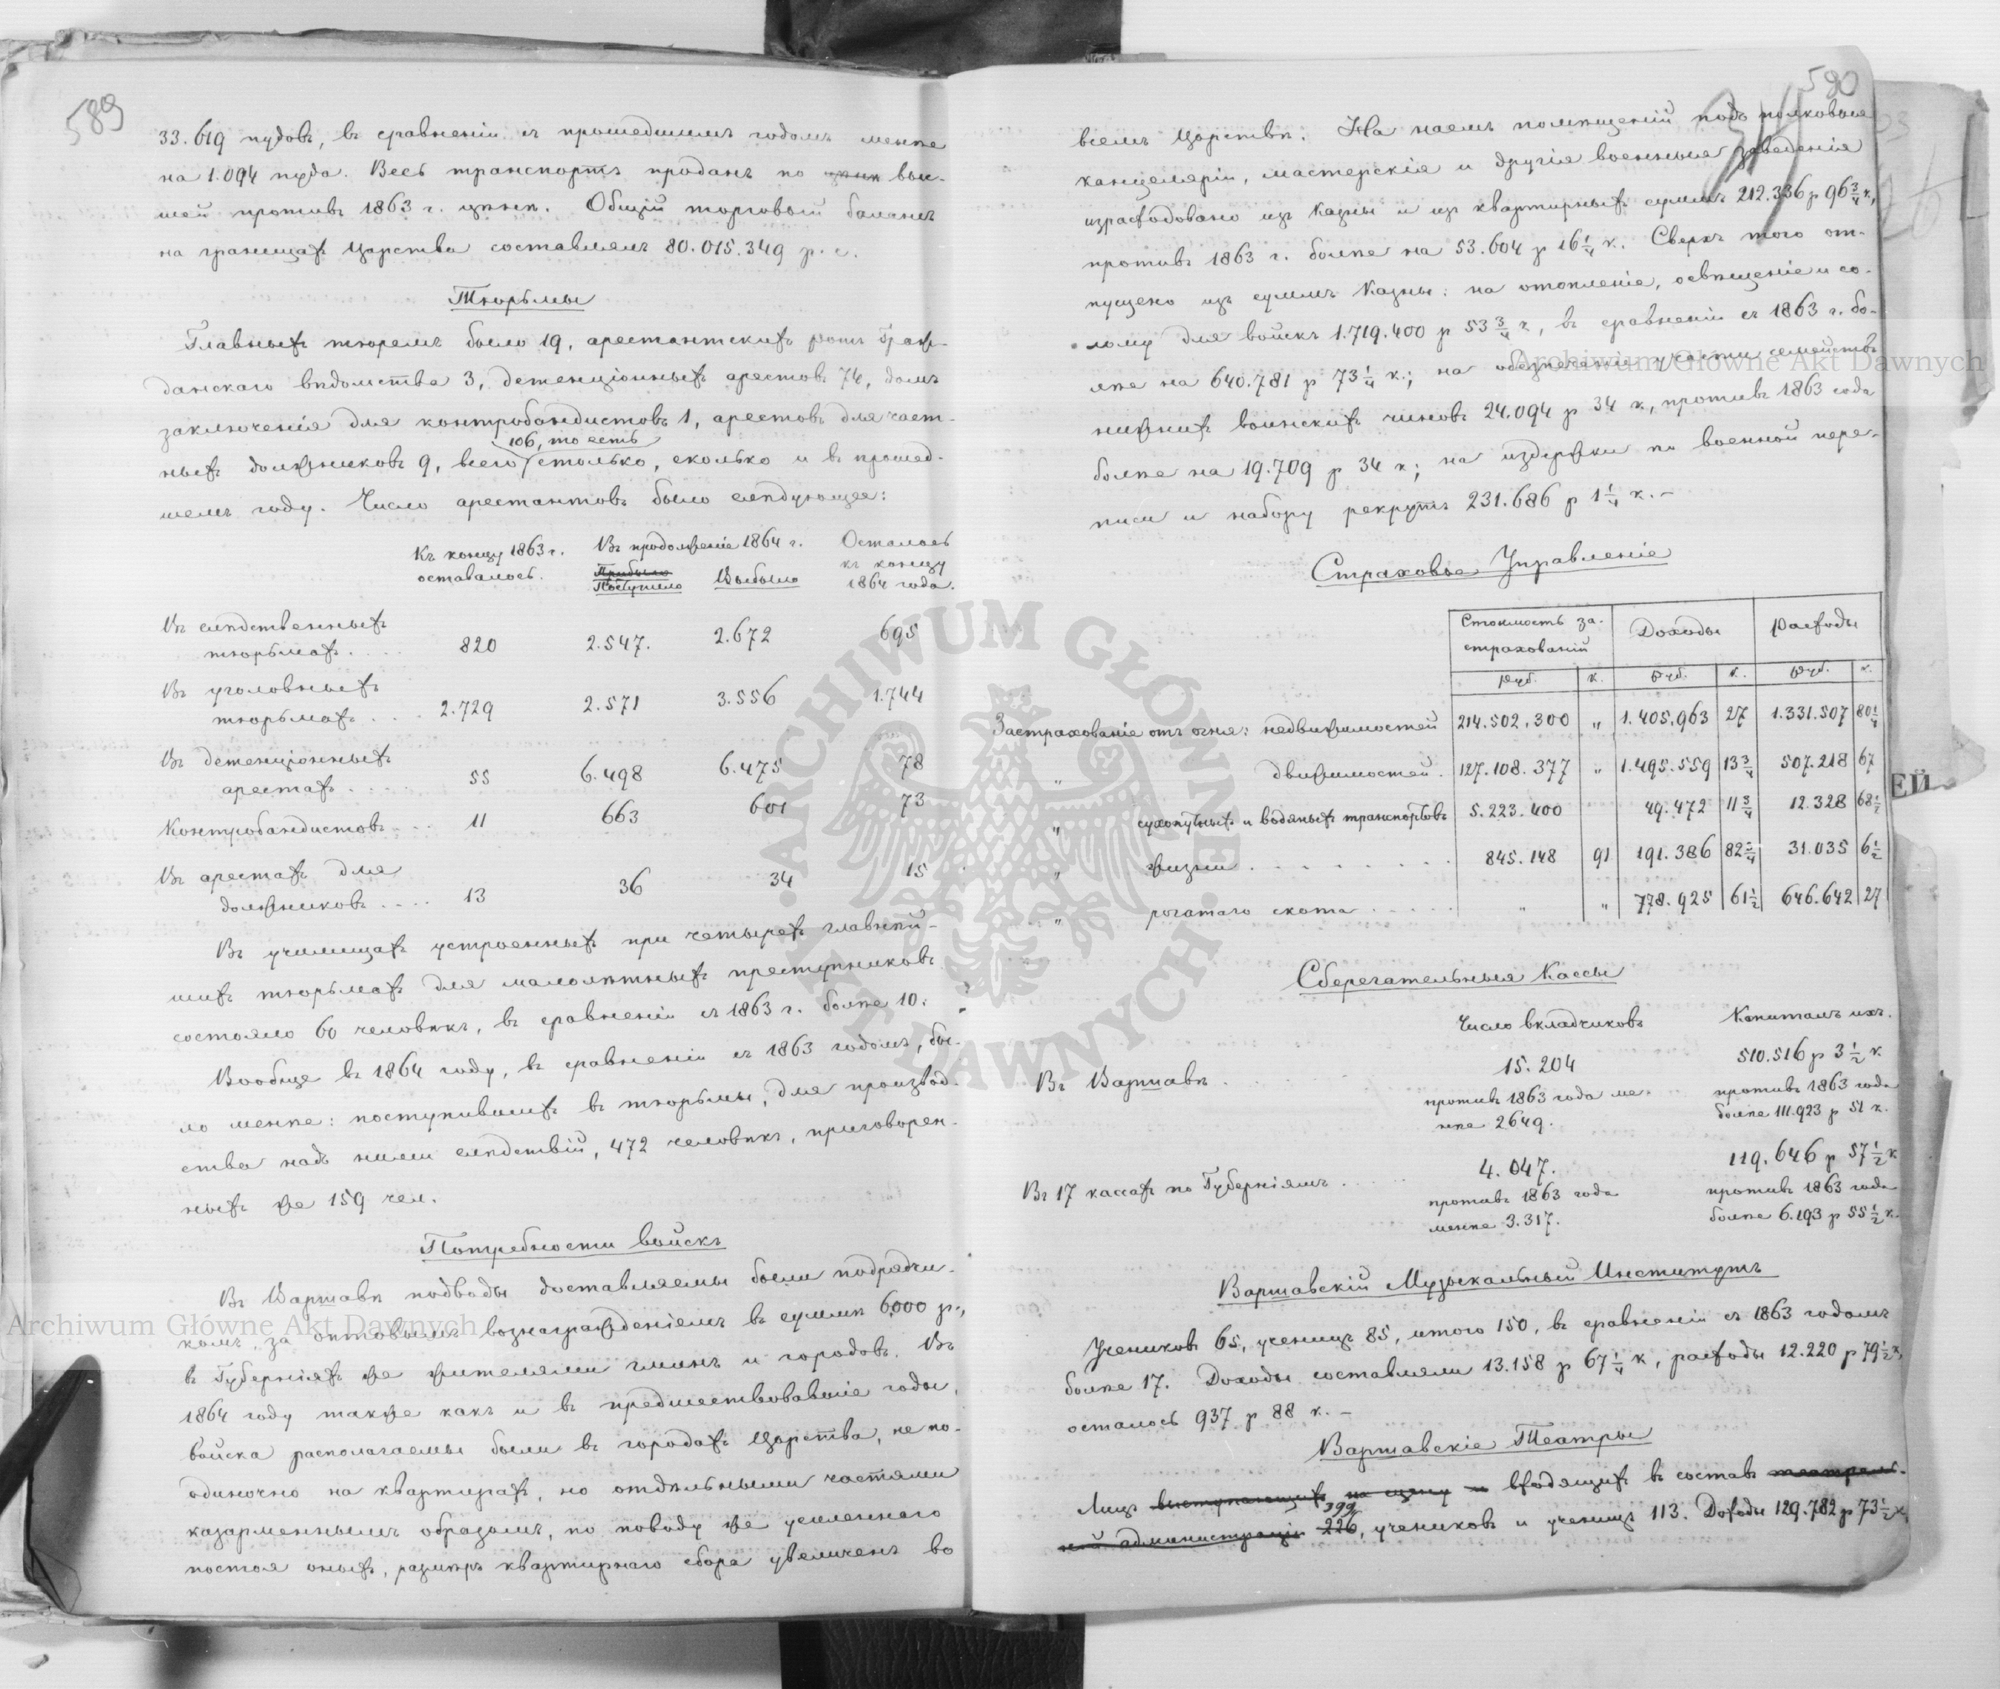 589
33.619 пудовъ, въ сравненіи съ прошедшимъ годомъ менѣе
на 1.094 пуда. Весь транспортъ проданъ по цѣнѣ выс-
шей противъ 1863 г. цѣнѣ. Общій торговый балансъ
на границахъ Царства составлялъ 80.015.349 р. с.
Тюрьмы
Главныхъ тюремъ было 19, арестантскихъ ротъ Граж-
данскаго вѣдомства 3, детенціонныхъ арестовъ 74, домъ
заключенія для контробандистовъ 1, арестовъ для част-
106, то есть
ныхъ должниковъ 9, всего столько, сколько и въ прошед-
шемъ году. Число арестантовъ было слѣдующее:
Къ концу 1863 г. оставалось.
Въ продолженіе 1864 г.
Прибыло
Поступило
Выбыло
Осталось къ концу 1864 года.
Въ слѣдственныхъ
тюрьмахъ . . . 820 2.547. 2.672 695
Въ уголовныхъ
тюрьмахъ . . . 2.729 2.571 3.556 1.744
Въ детенціонныхъ
арестахъ . . . 55 6.498 6.475 78
Контробандистовъ . . . 11 663 601 73
Въ арестахъ для
должниковъ . . . . 13 36 34 15
Въ училищахъ устроенныхъ при четырехъ главнѣй-
шихъ тюрьмахъ для малолѣтныхъ преступниковъ
состояло 60 человѣкъ, въ сравненіи съ 1863 г. болѣе 10.
Вообще въ 1864 году, въ сравненіи съ 1863 годомъ, бы-
ло менѣе: поступившихъ въ тюрьмы, для производ-
ства надъ ними слѣдствій, 472 человѣкъ, приговорен-
ныхъ же 159 чел.
Потребности войскъ
Въ Варшавѣ подводы доставляемы были подрядчи-
комъ, за оптовымъ вознагражденіемъ въ суммѣ 6,000 р.,
въ Губерніяхъ же жителями гминъ и городовъ. Въ
1864 году также какъ и въ предшествовавшіе годы,
войска располагаемы были въ городахъ Царства, не по-
одиночно на квартирахъ, но отдѣльными частями
казарменнымъ образомъ, по поводу же усиленнаго
постоя оныхъ, размѣръ квартирнаго сбора увеличенъ во
590
всемъ Царствѣ. На наемъ помѣщеній подъ полковыя
канцеляріи, мастерскія и другія военныя заведенія
израсходовано изъ Казны и изъ квартирныхъ суммъ 212.336 р 96 3/4 к,
противъ 1863 г. болѣе на 53.604 р 16 1/4 к. Сверхъ того от-
пущено изъ суммъ Казны: на отопленіе, освѣщеніе и со-
лому для войскъ 1.719.400 р 53 3/4 к, въ сравненіи съ 1863 г. бо-
лѣе на 640.781 р 73 1/4 к.; на обезпеченіе участи семействъ
нижнихъ воинскихъ чиновъ 24.094 р 34 к, противъ 1863 года
болѣе на 19.709 р 34 к; на издержки по военной пере-
писи и набору рекрутъ 231.686 р 1 1/4 к. –
Страховое Управленіе
Стоимость застрахованій Доходы Расходы
Руб. к. Руб. к. Руб. к.
Застрахованіе отъ огня: недвижимостей 214.502.300 „ 1.405.963 27 1.331.507 80 1/4
„ движимостей . 127.108.377 „ 1.495.559 13 3/4 507.218 67
„ сухопутныхъ и водяныхъ транспортовъ 5.223.400 „ 49.472 11 3/4 12.328 68 1/2
„ жизни . . . . . . . . 845.148 91 191.386 82 3/4 31.035 6 1/2
„ рогатаго скота . . . . . „ „ 778.925 61 1/2 646.642 27
Сберегательныя Кассы
Число вкладчиковъ Капиталъ ихъ.
Въ Варшавѣ . 15.204 510.516 р 3 1/2 к
противъ 1863 года ме- противъ 1863 года
нѣе 2649. болѣе 111.923 р 51 к.
Въ 17 кассахъ по Губерніямъ . . . 4.047. 119.646 р 57 1/2 к
противъ 1863 года противъ 1863 года
менѣе 3.317. болѣе 6.193 р 55 1/2 к.
Варшавскій Музыкальный Институтъ
Учениковъ 65, ученицъ 85, итого 150, въ сравненіи съ 1863 годомъ
болѣе 17. Доходы составляли 13.158 р 67 1/4 к, расходы 12.220 р 79 1/2 к,
осталось 937 р 88 к. –
Варшавскіе Театры
Лицъ выступающихъ на сцену и входящихъ въ составъ театраль-
399
ной администраціи 226, учениковъ и ученицъ 113. Доходы 129.782 р 73 1/2 к,
ЕЙ
Archiwum Główne Akt Dawnych
Archiwum Główne Akt Dawnych
ARCHIWUM GŁÓWNE · AKT DAWNYCH ·